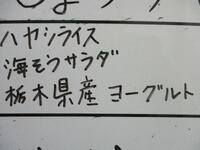 ハヤシライス
海そうサラダ
栃木県産 ヨーグルト